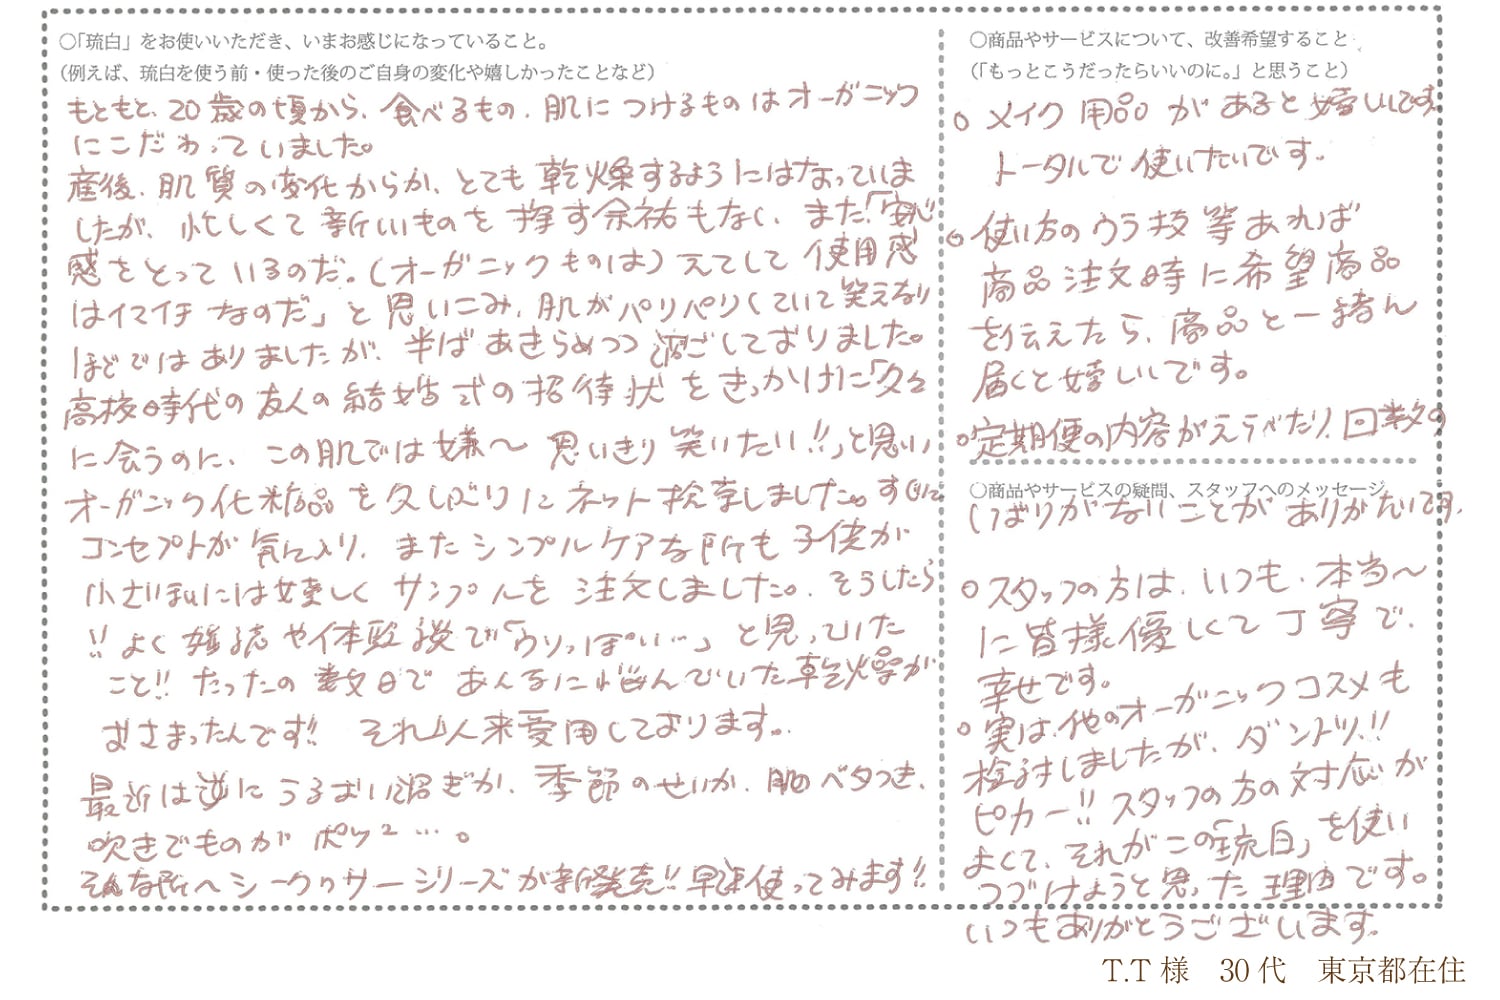 ○「琉白」をお使いいただき、いまお感じになっていること。
（例えば、琉白を使う前・使った後のご自身の変化や嬉しかったことなど）
もともと、20歳の頃から、食べるもの、肌につけるものはオーガニック
にこだわっていました。
産後、肌質の変化からか、とても乾燥するようにはなっていま
したが、忙しくて新しいものを探す余裕もなく、また、「安心
感をとっているのだ。（オーガニックものは）えてして使用感
はイマイチなのだ」と思いこみ、肌がパリパリしていて笑えない
ほどではありましたが、半ばあきらめつつ過ごしておりました。
高校時代の友人の結婚式の招待状をきっかけに「久々
に会うのに、この肌では嫌〜思いきり笑いたい!!」と思い
オーガニック化粧品を久しぶりにネット検索しました。すぐに
コンセプトが気に入り、またシンプルケアな所も子供が
小さい私には嬉しくサンプルを注文しました。そうしたら
!!よく雑誌や体験談で「ウソっぽい…」と思っていた
こと!!たったの数日であんなに悩んでいた乾燥が
おさまったんです!!それ以来愛用しております。
最近は逆にうるおい過ぎか、季節のせいか、肌ベタつき、
吹きでものがポツ2…。
そんな所へシークワサーシリーズが新発売!!早速使ってみます!!
○商品やサービスについて、改善希望すること
（「もっとこうだったらいいのに。」と思うこと）
○メイク用品があると嬉しいです。
トータルで使いたいです。
○使い方のウラ技等あれば
商品注文時に希望商品
を伝えたら、商品と一緒に
届くと嬉しいです。
○定期便の内容がえらべたり、回数の
○商品やサービスの疑問、スタッフへのメッセージ
しばりがないことがありがたいです。
○スタッフの方は、いつも、本当〜
に皆様優しくて丁寧で、
幸せです。
○実は、他のオーガニックコスメも
検討しましたが、ダントツ!!
ピカー!!スタッフの方の対応が
よくて、それがこの「琉白」を使い
つづけようと思った理由です。
いつもありがとうございます。
T.T 様　30代　東京都在住